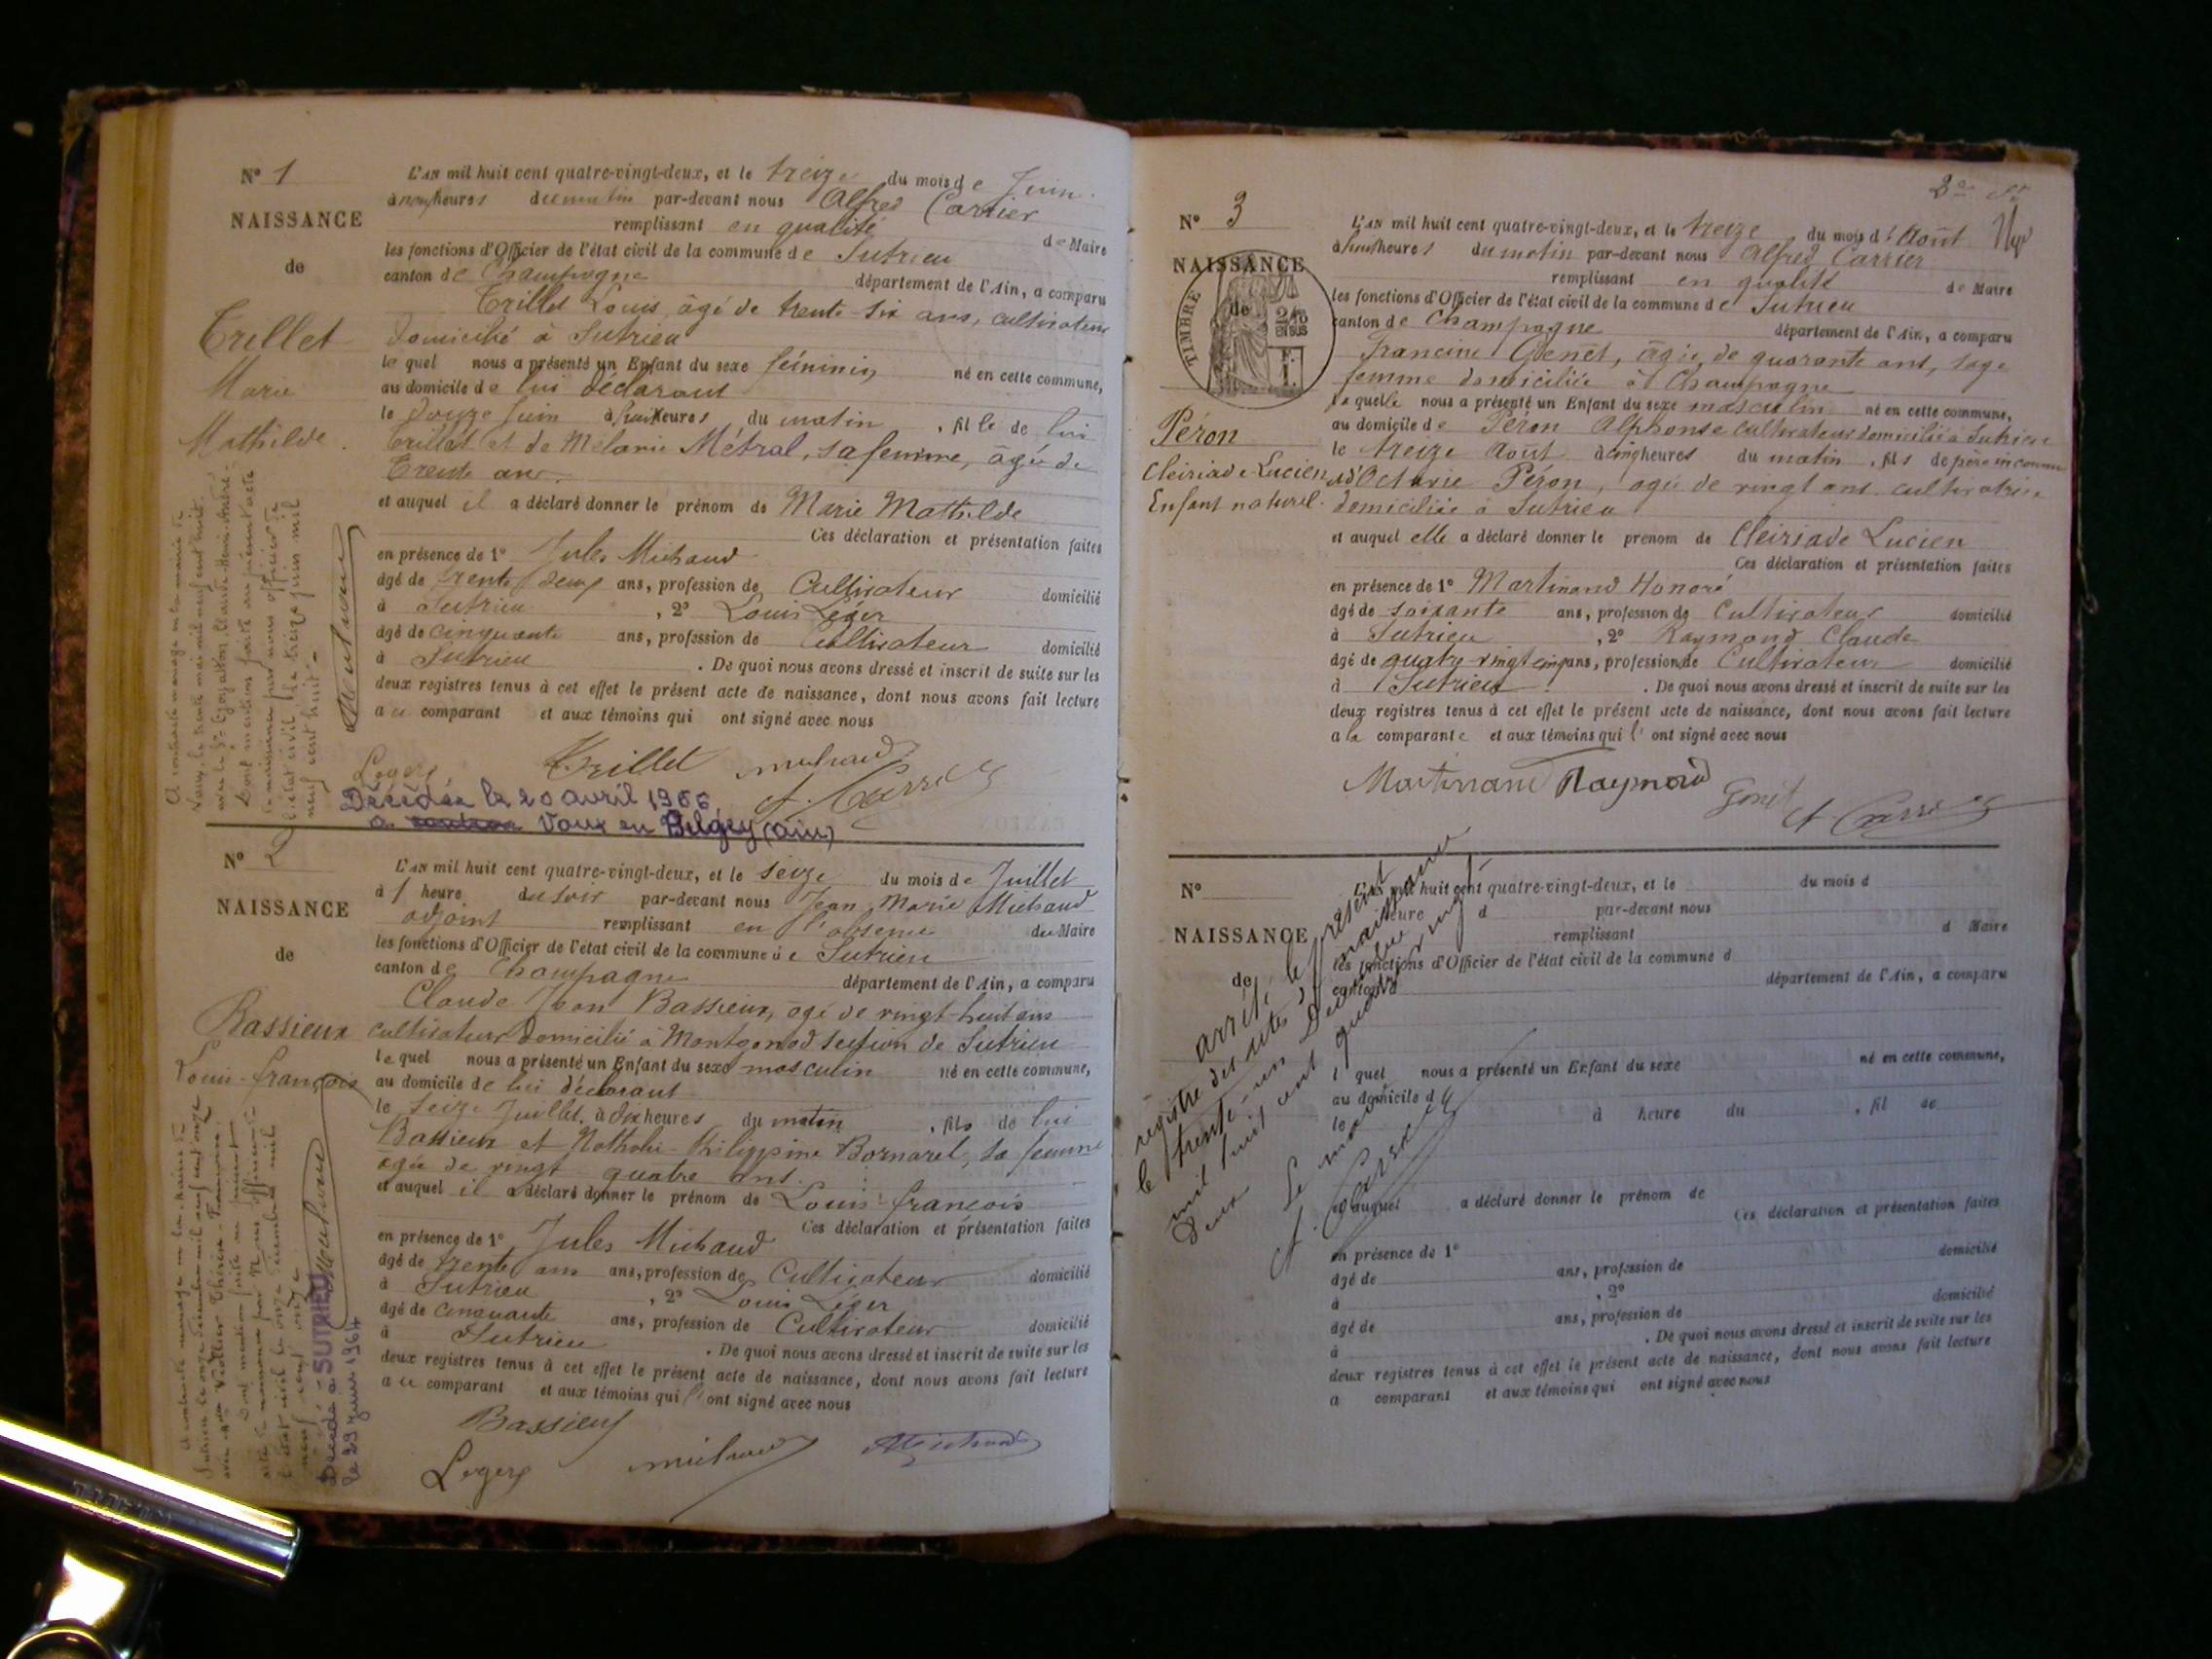 Nº 1
NAISSANCE
de
Trillet
Marie
Mathilde
L'AN mil huit cent quatre-vingt-deux, et le treize du mois de Juin
à neuf heures du matin par-devant nous Alfred Carrier
remplissant en qualité de Maire
les fonctions d'Officier de l'état civil de la commune de Sutrieu
canton de Champagne département de l'Ain, a comparu
Trillet Louis, âgé de trente-six ans, cultivateur
domicilié à Sutrieu
lequel nous a présenté un Enfant du sexe féminin, né en cette commune,
au domicile de lui déclarant
le douze Juin à huit heures du matin, fille de lui
Trillet et de Mélanie Métral, sa femme, âgée de
Trente ans.
et auquel il a déclaré donner le prénom de Marie Mathilde
Ces déclaration et présentation faites
en présence de 1º Jules Michaud
âgé de trente deux ans, profession de Cultivateur domicilié
à Sutrieu, 2º Louis Léger
âgé de cinquante ans, profession de Cultivateur domicilié
à Sutrieu. De quoi nous avons dressé et inscrit de suite sur les
deux registres tenus à cet effet le présent acte de naissance, dont nous avons fait lecture
au comparant et aux témoins qui ont signé avec nous
Legers Trillet michaud
A. Carrier
A contracté mariage en la mairie de
Vaux, le trente mai mil neuf cent huit
Dont mention faite
l'état civil, le treize juin mil
neuf cent huit
Décédée le 20 avril 1966
à Vaux en Bugey (ain)
Nº 2
NAISSANCE
de
Bassieux
Louis-françois
L'AN mil huit cent quatre-vingt-deux, et le seize du mois de Juillet
à 1 heure du soir par-devant nous Jean Marie Michaud
adjoint remplissant en l'absence du Maire
les fonctions d'Officier de l'état civil de la commune de Sutrieu
canton de Champagne département de l'Ain, a comparu
Claude Jean Bassieux, âgé de vingt-huit ans
cultivateur domicilié à Montgonod section de Sutrieu
lequel nous a présenté un Enfant du sexe masculin né en cette commune,
au domicile de lui déclarant
le seize Juillet, à dix heures du matin, fils de lui
Bassieux et Nathalie Philippine Bornarel, sa femme
âgée de vingt-quatre ans.
et auquel il a déclaré donner le prénom de Louis françois
Ces déclaration et présentation faites
en présence de 1º Jules Michaud
âgé de trente ans ans, profession de Cultivateur domicilié
à Sutrieu, 2º Louis Léger
âgé de cinquante ans, profession de Cultivateur domicilié
à Sutrieu. De quoi nous avons dressé et inscrit de suite sur les
deux registres tenus à cet effet le présent acte de naissance, dont nous avons fait lecture
au comparant et aux témoins qui l'ont signé avec nous
Bassieux
Legers michaud Michaud
A contracté mariage en la mairie de
Sutrieu le onze décembre mil neuf cent onze
Décédé à SUTRIEU
le 29 juin 1964
Nº 3
NAISSANCE
de
TIMBRE
EN SUS
Péron
Cleiriade Lucien
Enfant naturel
L'AN mil huit cent quatre-vingt-deux, et le treize du mois d'Août
à huit heures du matin par-devant nous Alfred Carrier
remplissant en qualité de Maire
les fonctions d'Officier de l'état civil de la commune de Sutrieu
canton de Champagne département de l'Ain, a comparu
Francine Genet, âgée de quarante ans, sage
femme domiciliée à Champagne
laquelle nous a présenté un Enfant du sexe masculin né en cette commune,
au domicile de Péron Alphonse cultivateur domicilié à Sutrieu
le treize Août à cinq heures du matin, fils de père inconnu
et d'Octavie Péron, âgée de vingt ans cultivatrice
domiciliée à Sutrieu
et auquel elle a déclaré donner le prénom de Cleiriade Lucien
Ces déclaration et présentation faites
en présence de 1º Martinand Honoré
âgé de soixante ans, profession de Cultivateur domicilié
à Sutrieu, 2º Raymond Claude
âgé de quatre vingt cinq ans, profession de Cultivateur domicilié
à Sutrieu. De quoi nous avons dressé et inscrit de suite sur les
deux registres tenus à cet effet le présent acte de naissance, dont nous avons fait lecture
à la comparante et aux témoins qui l'ont signé avec nous
Martinand Raymond Genet
A Carrier
Nº
NAISSANCE
de
L'AN mil huit cent quatre-vingt-deux, et le du mois d
heure d par-devant nous
remplissant d Maire
les fonctions d'Officier de l'état civil de la commune d
canton d département de l'Ain, a comparu
l quel nous a présenté un Enfant du sexe né en cette commune,
au domicile d
le à heure du, fil de
et auquel a déclaré donner le prénom de
Ces déclaration et présentation faites
en présence de 1º
âgé de ans, profession de domicilié
à, 2º
âgé de ans, profession de domicilié
à. De quoi nous avons dressé et inscrit de suite sur les
deux registres tenus à cet effet le présent acte de naissance, dont nous avons fait lecture
a comparant et aux témoins qui ont signé avec nous
arrêté le présent
registre des actes de naissance
le trente-un Décembre
mil huit cent quatre vingt
deux
Le maire
A. Carrier